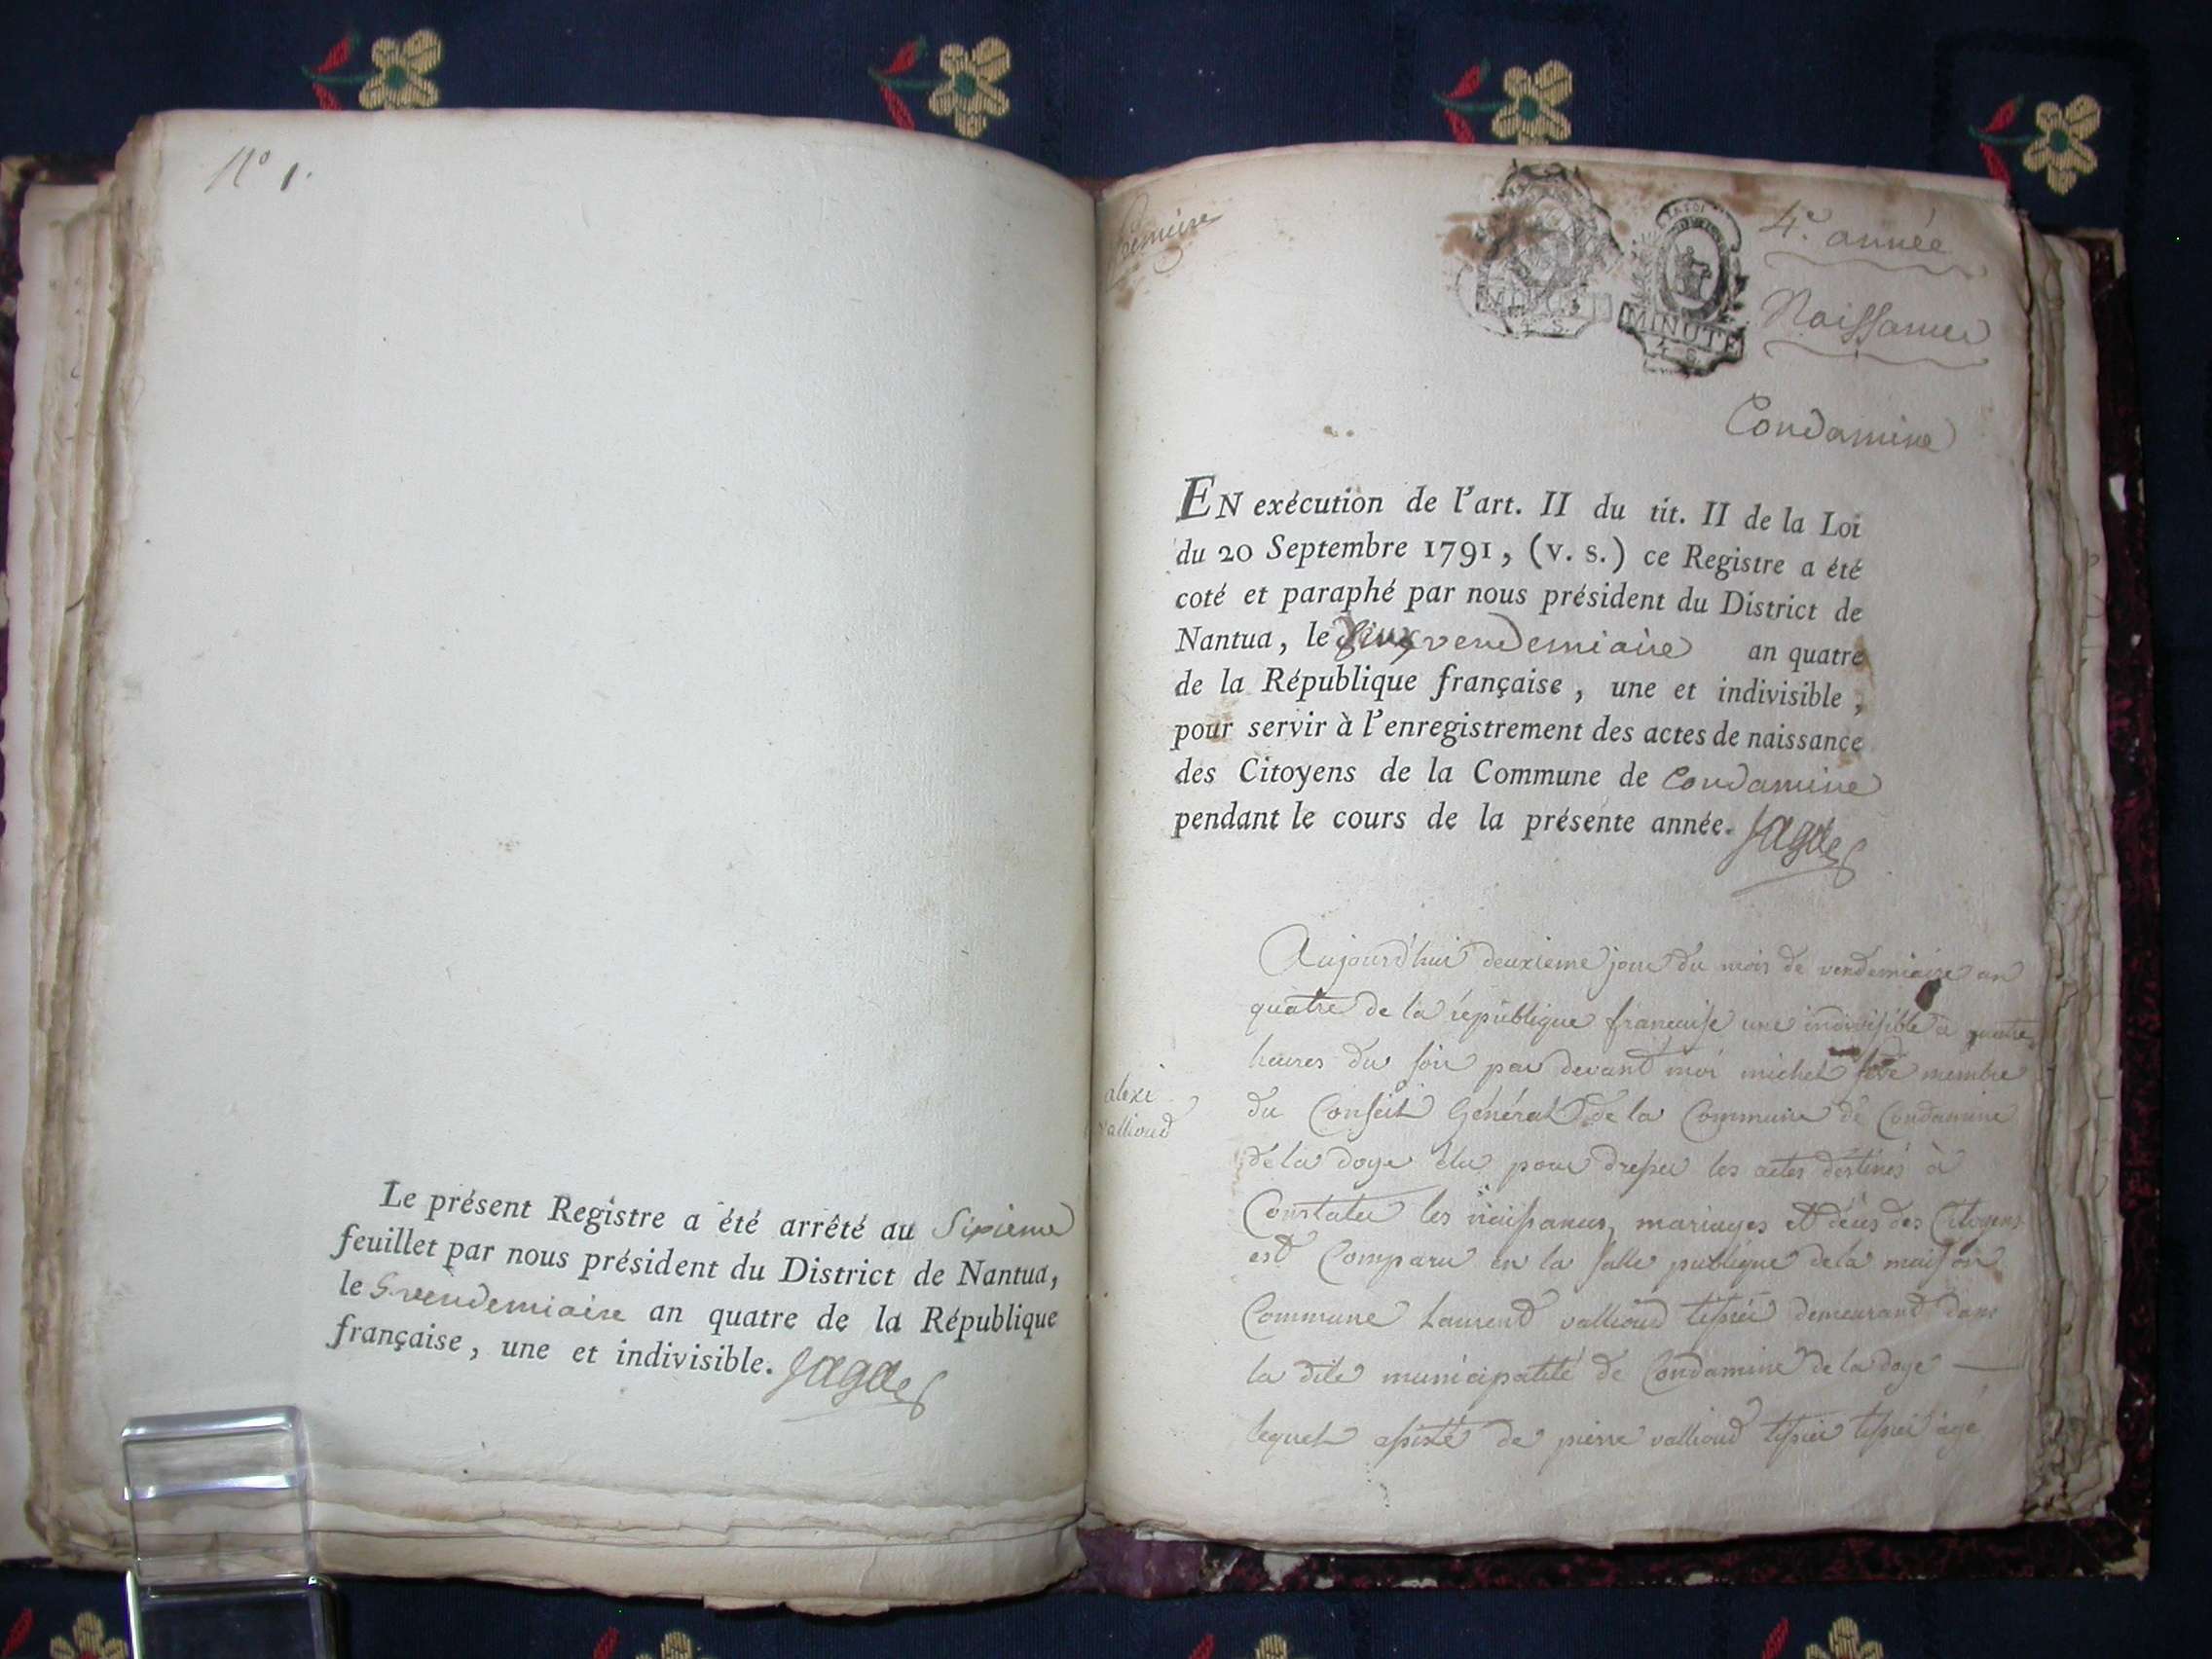 N° 1.
Le présent Registre a été arrêté au Sixieme
feuillet par nous président du District de Nantua,
le 5 vendemiaire an quatre de la République
française, une et indivisible.
premiere
4.e année
Naissances
MINUTE
4 S.
Condamine
EN exécution de l'art. II du tit. II de la Loi
du 20 Septembre 1791, (v. s.) ce Registre a été
coté et paraphé par nous président du District de
Nantua, le vendemiaire an quatre
de la République française, une et indivisible,
pour servir à l'enregistrement des actes de naissance
des Citoyens de la Commune de Condamine
pendant le cours de la présente année.
alexi
vallioud
Aujourd'hui deuxieme jour du mois de vendemiaire an
quatre de la république francaise une indivisible à quatre
heures du soir par devant moi michel membre
du Conseil Général de la Commune de Condamine
de la doye élu pour dresser les actes destinés à
Constater les naissances, mariages et déces des Citoyens
est Comparu en la salle publique de la maison
Commune Laurent vallioud tissier demeurant dans
la dite municipalité de Condamine de la doye
lequel assisté de pierre vallioud tissier tissier agé